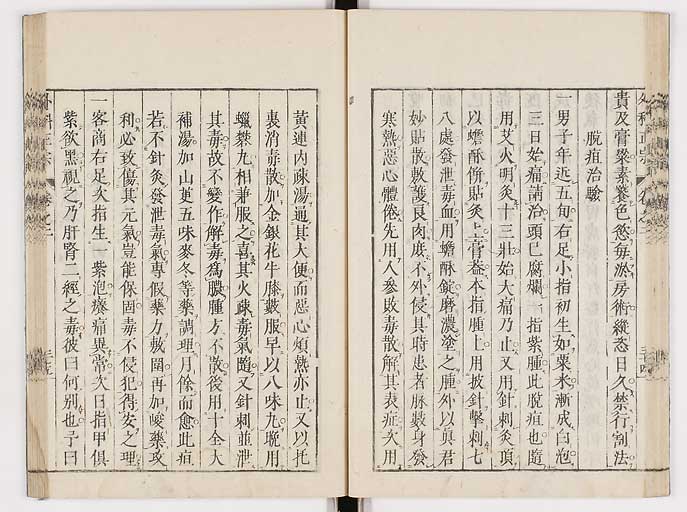 貴及膏粱素養色慾每淤房術縱恣日久禁行割法
脫疽治驗
一男子年近五旬右足小指初生如粟米漸成白泡
三日始痛請治頭已腐爛一指紫腫此脫疽也隨
用艾火明灸十三壯始大痛乃止又用針刺灸頂
以蟾酥餅貼灸上膏蓋本指腫上用披針擊刺七
八處發泄毒血用蟾酥錠磨濃塗之腫外以眞君
妙貼散敷護良肉庶不外侵其時患者脉數身發
寒熱惡心體倦先用人參敗毒散解其表症次用
黃連內疎湯通其大便而惡心煩熱亦止又以托
裏消毒散加金銀花牛膝數服早以八味丸晚用
蠟礬丸相兼服之喜其火疎毒氣隨又針刺並泄
其毒故不變作解毒爲膿腫方不散後用十全大
補湯加山萸五味麥冬等藥調理月餘而愈此疽
若不針灸發泄毒氣專假藥力敷圍再加峻藥攻
利必致傷其元氣豈能保固毒不侵犯得安之理
一客商右足次指生一紫泡癢痛異常次日指甲俱
紫欲黑視之乃肝腎二經之毒彼曰何別也予曰
外科正宗
卷之二